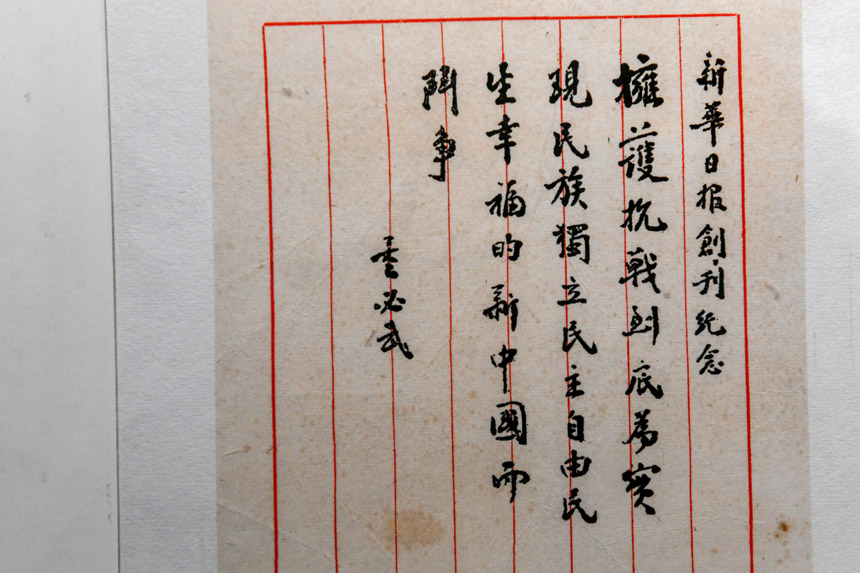 新華日报創刊纪念
擁護抗戰到底為实
現民族獨立民主自由民
生幸福的新中國而
鬥争
董必武